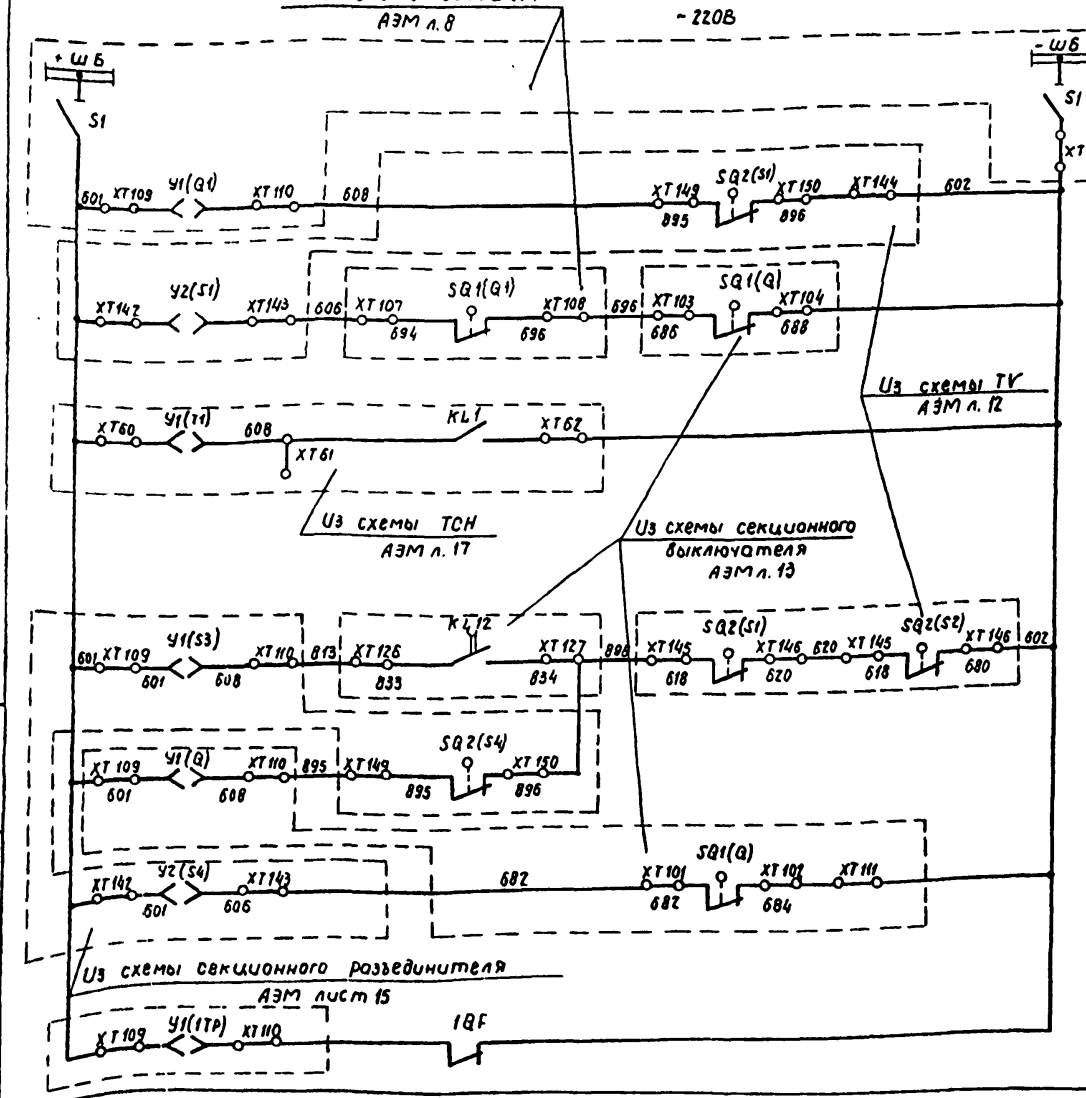 АЭМ л. 8
~220В
+ ШБ
- ШБ
S1
S1
XT
601 XT109 У1(Q1) XT110 608 XT149 SQ2(S1) XT150 XT144 602
895 896
XT142 У2(S1) XT143 606 XT107 SQ1(Q1) XT108 696 XT103 SQ1(Q) XT104
694 696 686 688
Из схемы TV
АЭМ л. 12
XT60 У1(T1) 608 KL1 XT62
XT61
Из схемы ТСН
АЭМ л. 17
Из схемы секционного
выключателя
АЭМ л. 13
601 XT109 У1(S3) XT110 813 XT126 KL12 XT127 896 XT145 SQ2(S1) XT146 620 XT145 SQ2(S2) XT146 602
601 608 833 834 618 620 618 680
XT109 У1(Q) XT110 895 XT149 SQ2(S4) XT150
601 608 895 896
XT142 У2(S4) XT143 682 XT101 SQ1(Q) XT102 XT111
601 606 682 684
Из схемы секционного разъединителя
АЭМ лист 15
XT109 У1(1ТР) XT110 1QF